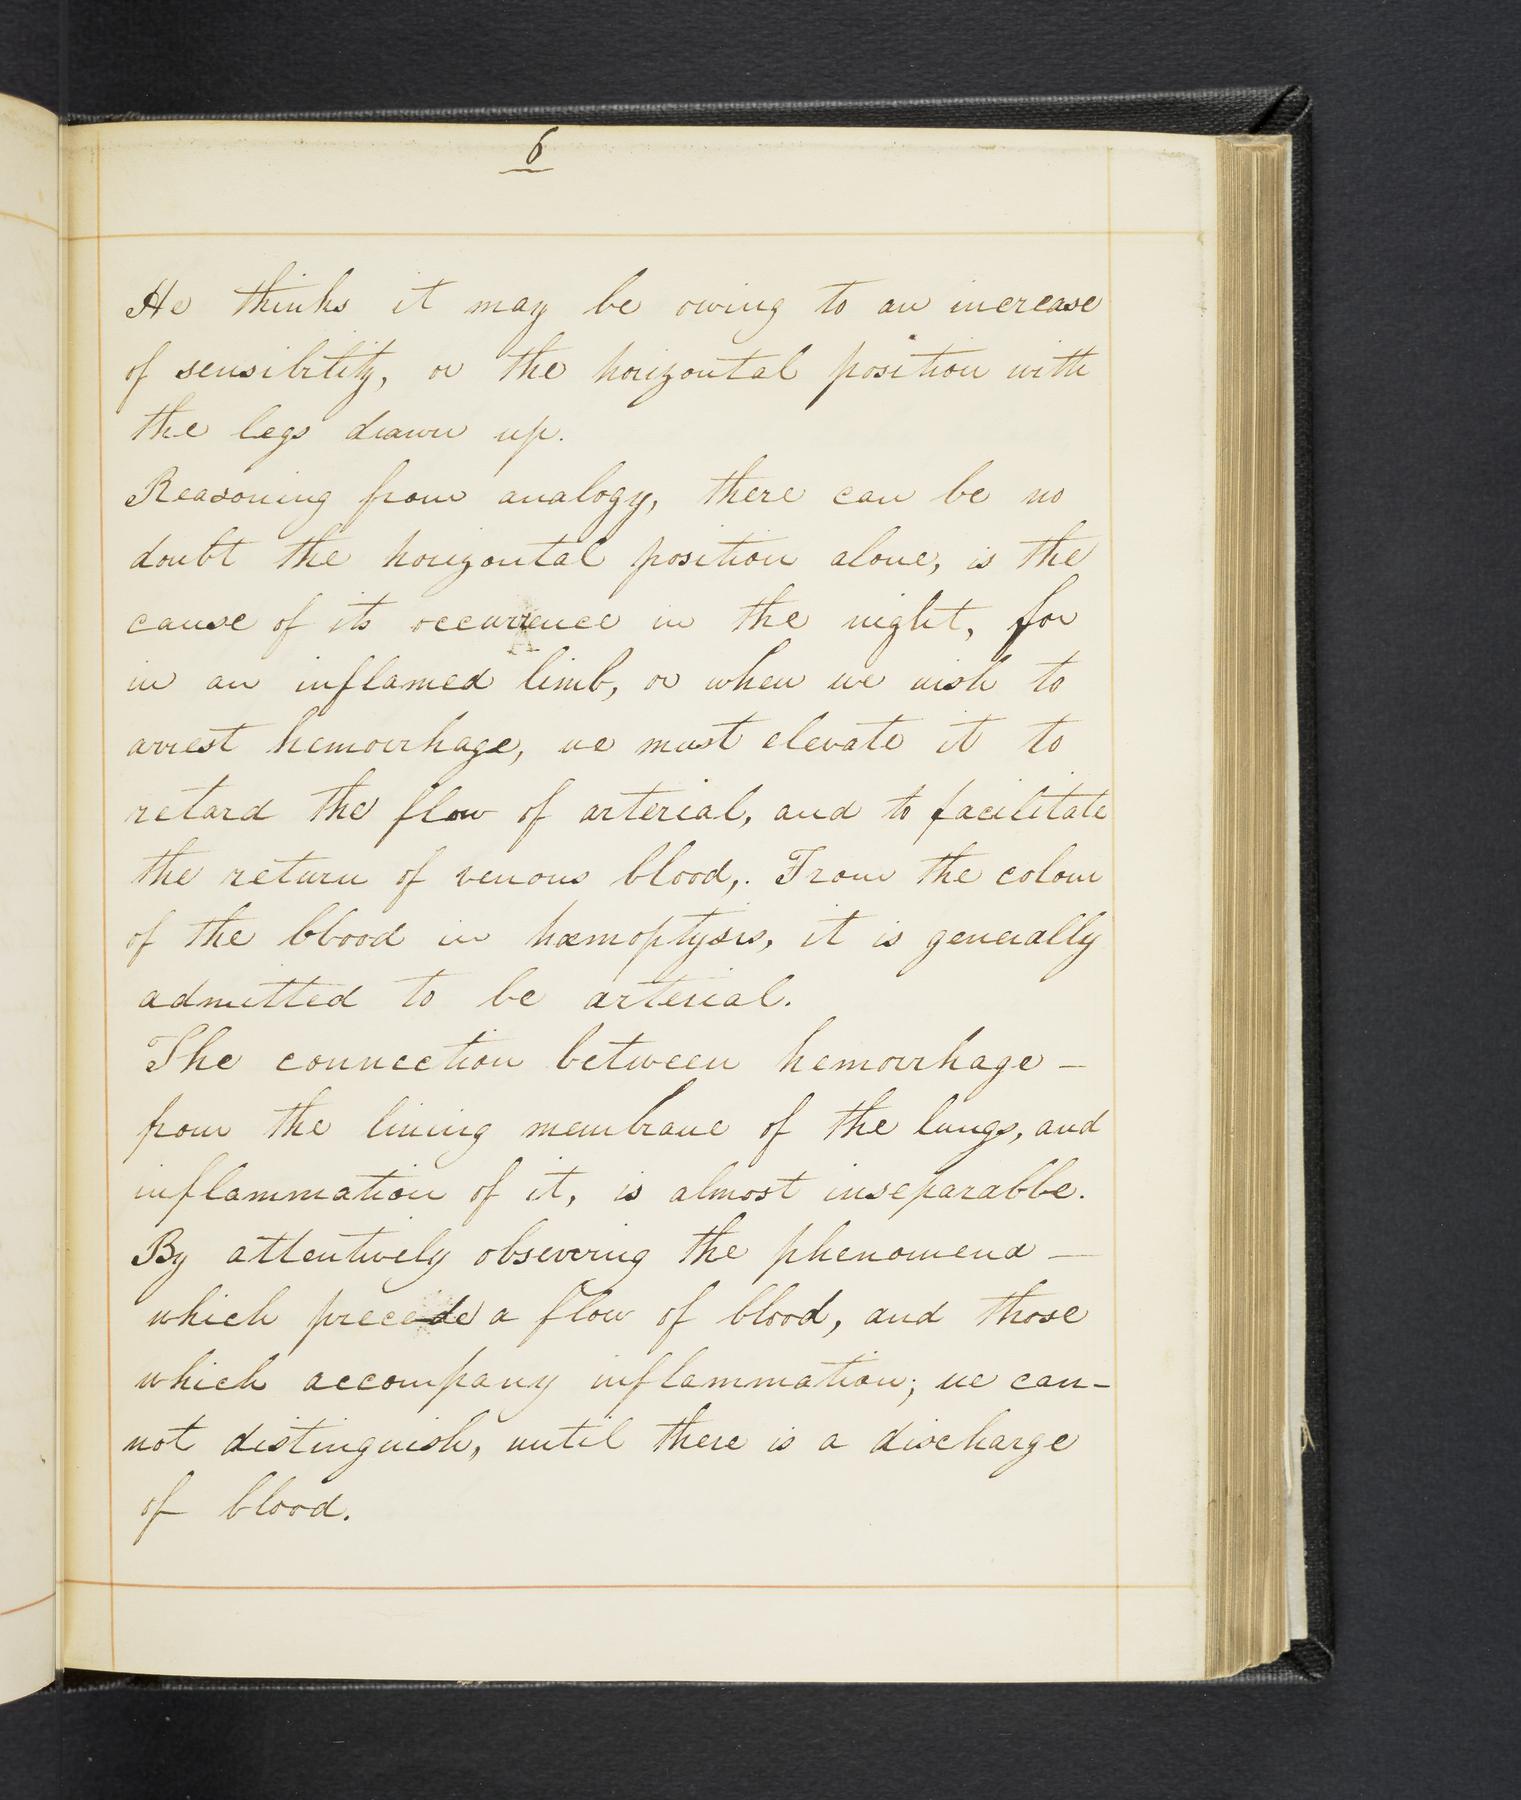 6
He thinks it may be owing to an increase
of sensibility, or the horizontal position with
the legs drawn up.
Reasoning from analogy, there can be no
doubt the horizontal position alone, is the
cause of its occurrence in the night, for
in an inflamed limb, or when we wish to
arrest hemorrhage, we must elevate it to
retard the flow of arterial, and to facilitate
the return of venous blood,. From the colour
of the blood in hæmoptysis, it is generally
admitted to be arterial.
The connection between hemorrhage –
from the lining membrane of the lungs, and
inflammation of it, is almost inseparable.
By attentively observing the phenomena –
which precede a flow of blood, and those
which accompany inflammation; we can-
not distinguish, until there is a discharge
of blood.